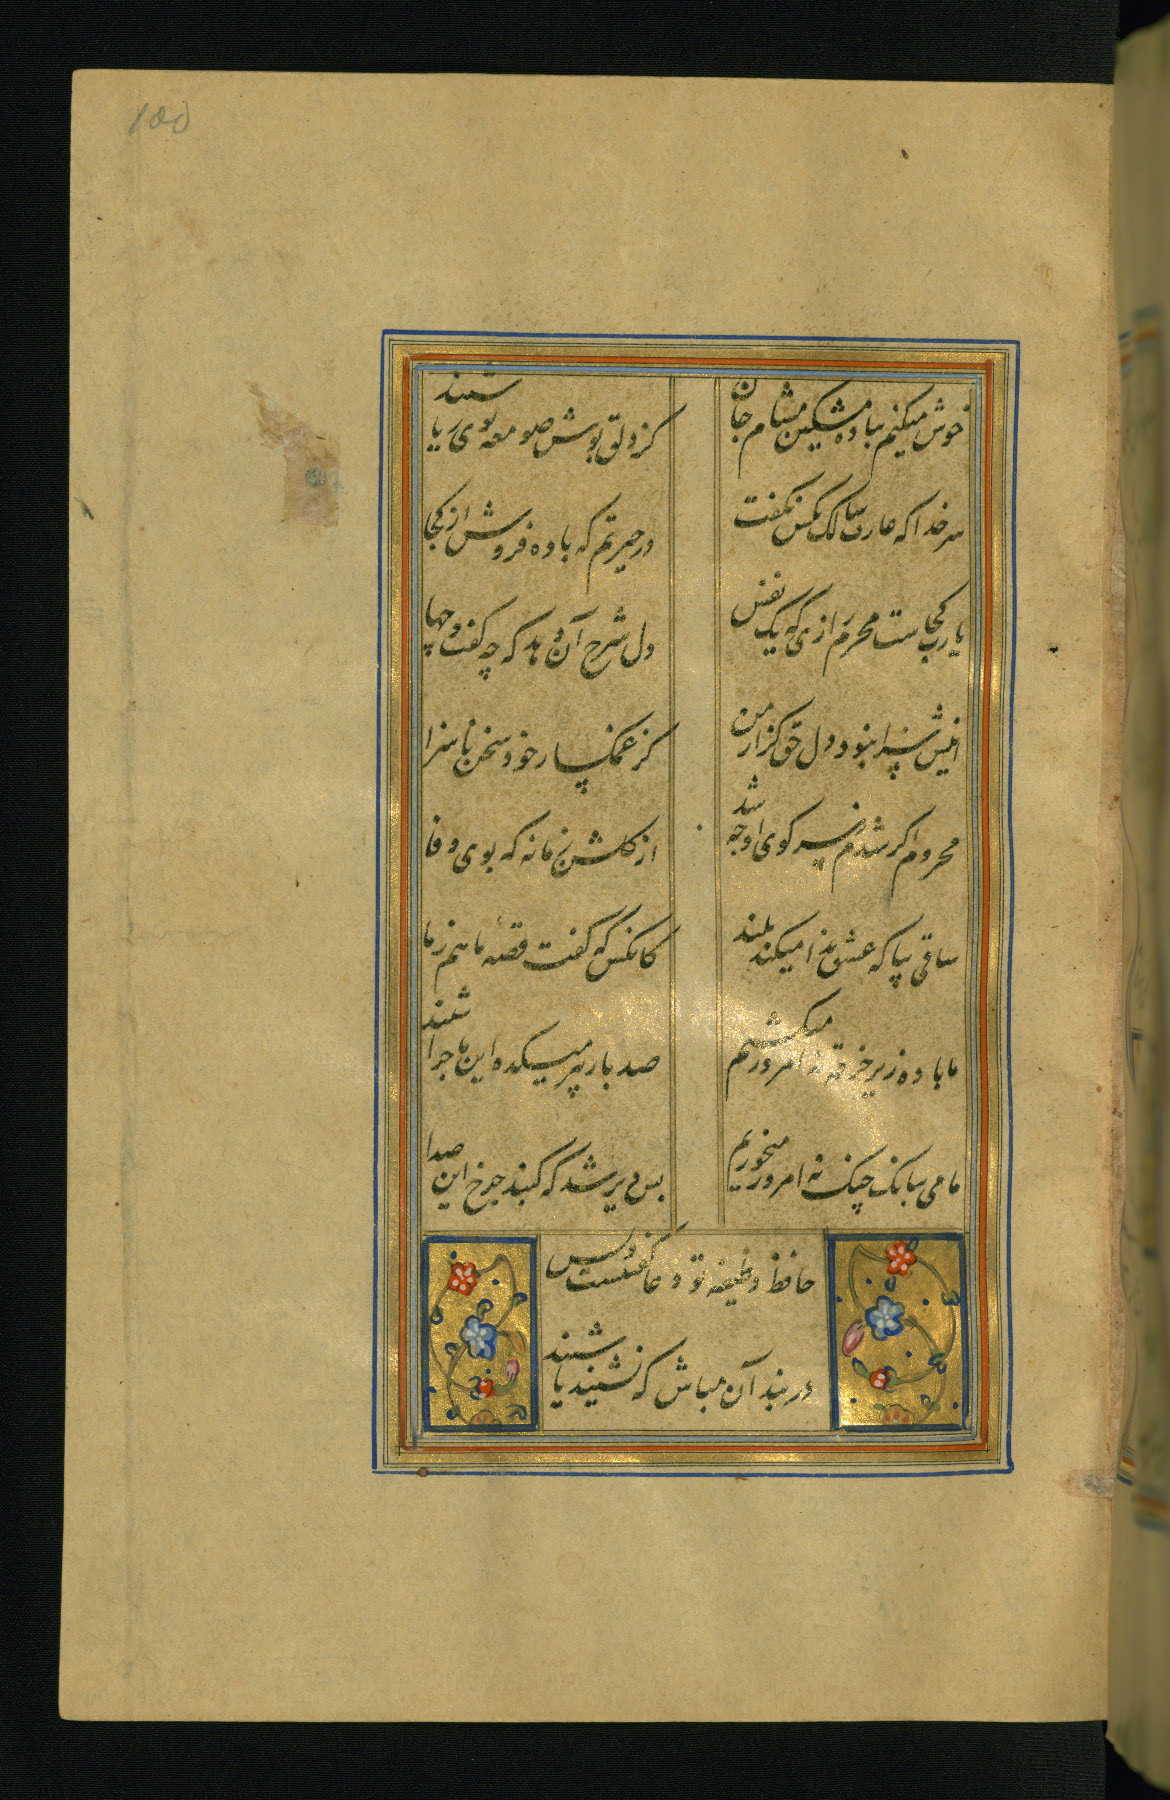 100
خوش میکنم بباده مشکین مشام جان
کز دلق پوش صومعه بوی ریا شنید
سر خدا که عارف سالک بکس نگفت
در حیرتم که باده فروش از کجا
یا رب کجاست محرم رازی که یک نفس
دل شرح آن دهد که چه گفت و چها
اینش سزا نبود دل حق گزار من
کز غمگسار خود سخن ناسزا
محروم اگر شدم ز سر کوی او چه شد
از گلشن زمانه که بوی وفا
ساقی بیا که عشق ندا میکند بلند
کانکس که گفت قصه ما هم ز ما
ما باده زیر خرقه نه امروز میکشیم
صد بار پیر میکده این ماجرا شنید
ما می ببانک چنک نه امروز میخوریم
بس دیر شد که گنبد چرخ این صدا
حافظ وظیفه تو دعا گفتنست و بس
در بند آن مباش که نشنید یا شنید